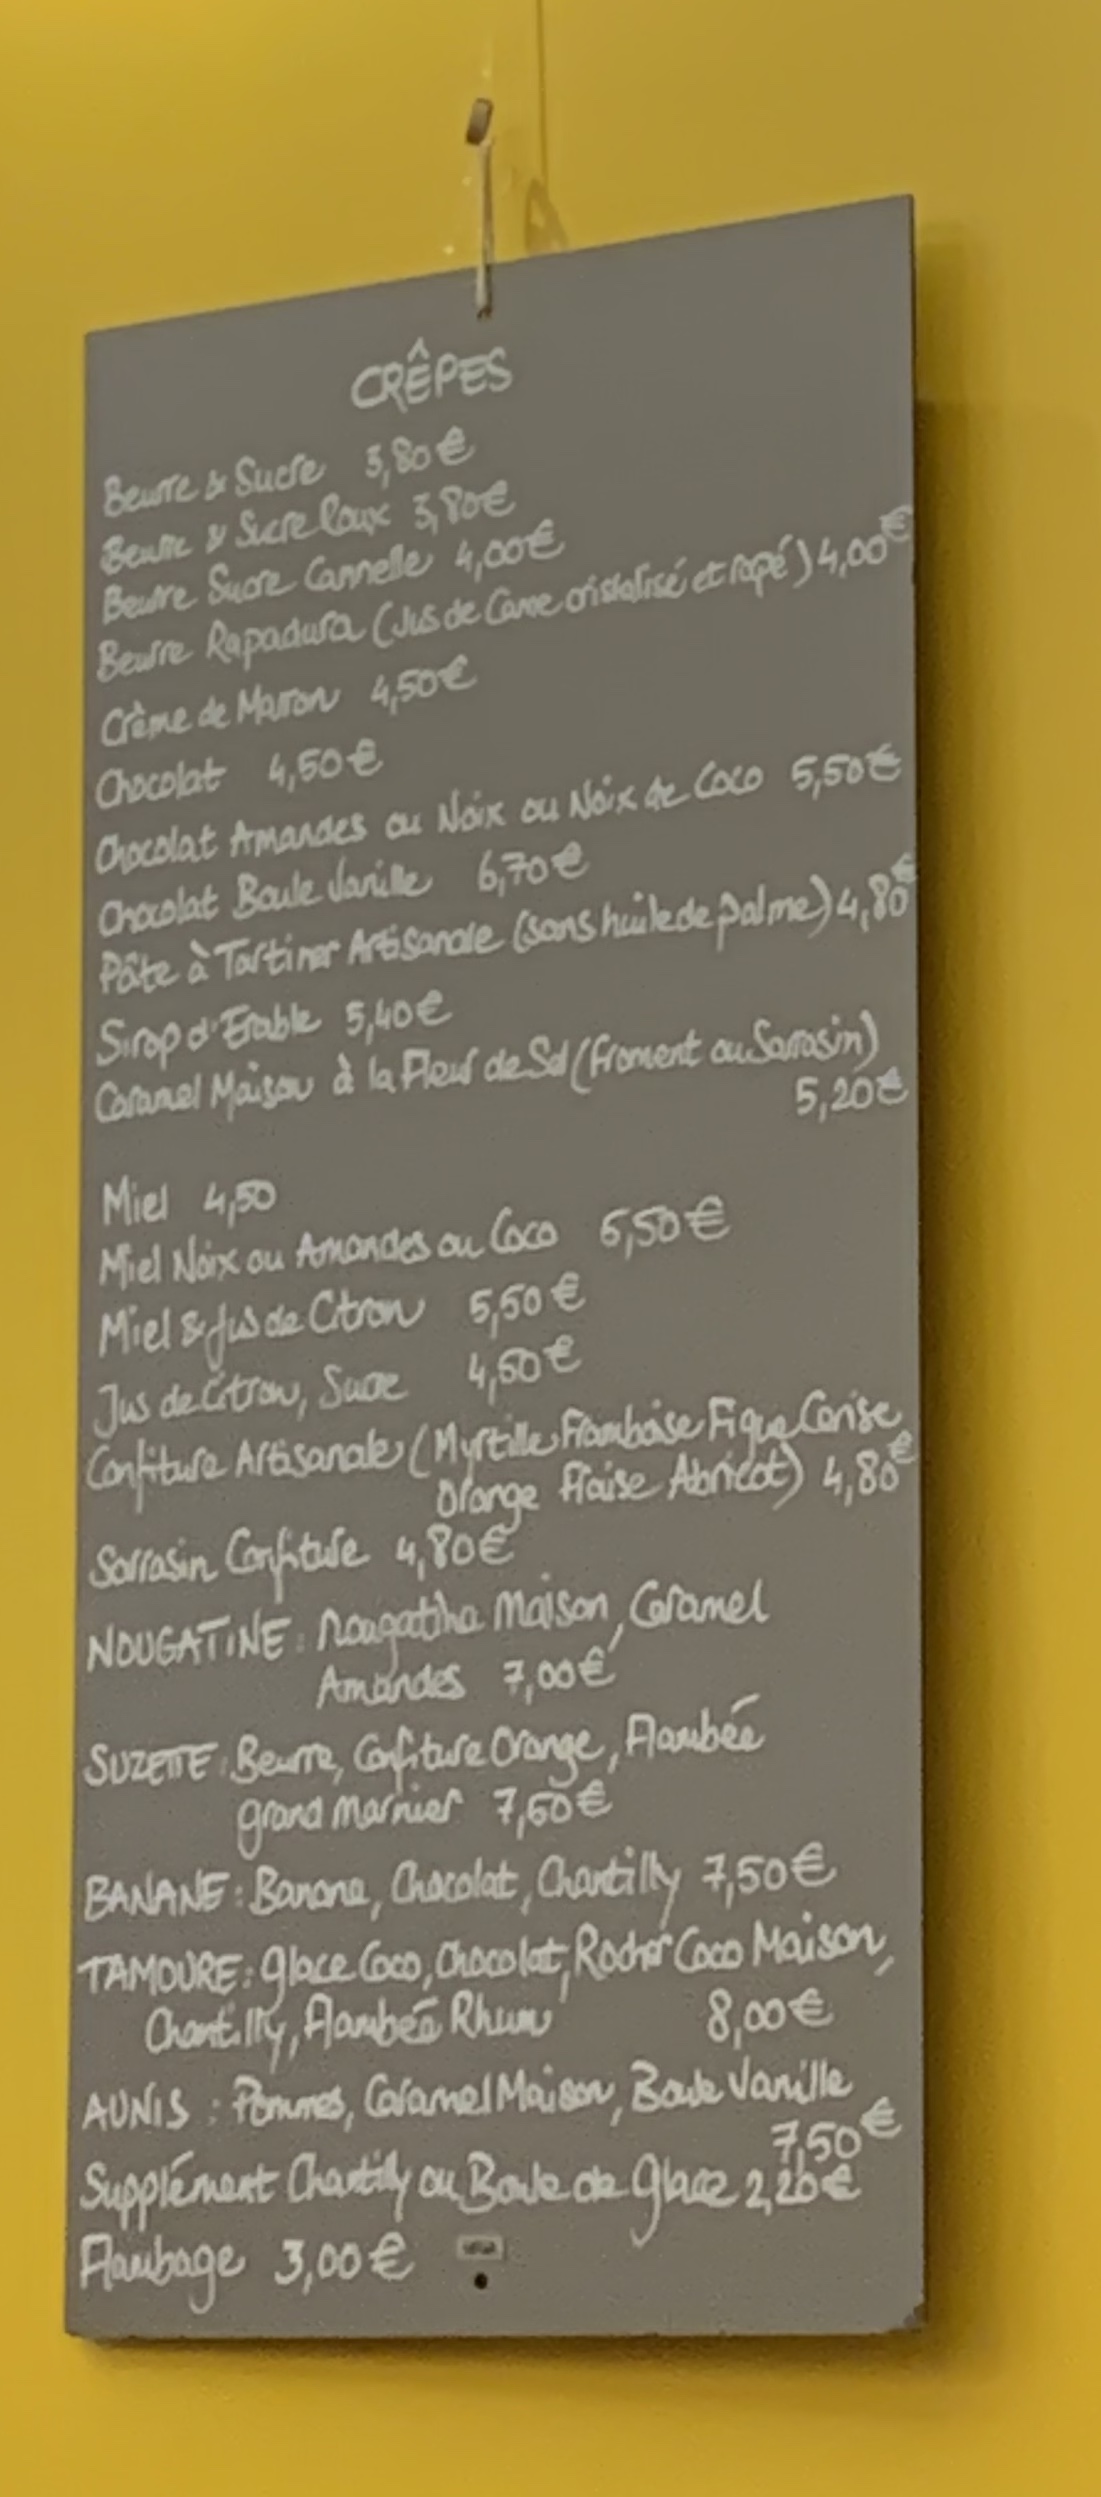 CRÊPES
Beurre & Sucre 3,80€
Beurre & Sucre Roux 3,80€
Beurre Sucre Cannelle 4,00€
Beurre Rapadura (Jus de Canne cristalisé et rapé) 4,00€
Crème de Marron 4,50€
Chocolat 4,50€
Chocolat Amandes ou Noix ou Noix de Coco 5,50€
Chocolat Boule Vanille 6,70€
Pâte à Tartiner Artisanale (sans huile de palme) 4,80€
Sirop d'Erable 5,40€
Caramel Maison à la Fleur de Sel (froment ou Sarrasin)
5,20€
Miel 4,50
Miel Noix ou Amandes ou Coco 5,50€
Miel & Jus de Citron 5,50€
Jus de Citron, Sucre 4,50€
Confiture Artisanale (Myrtille Framboise Figue Cerise
Orange Fraise Abricot) 4,80€
Sarrasin Confiture 4,80€
NOUGATINE: Nougatine Maison, Caramel
Amandes 7,00€
SUZETTE: Beurre, Confiture Orange, Flambée
grand Marnier 7,50€
BANANE: Banane, Chocolat, Chantilly 7,50€
TAMOURE: glace Coco, Chocolat, Rocher Coco Maison,
Chantilly, Flambée Rhum 8,00€
AUNIS: Pommes, Caramel Maison, Boule Vanille
7,50€
Supplément Chantilly ou Boule de glace 2,20€
Flambage 3,00€